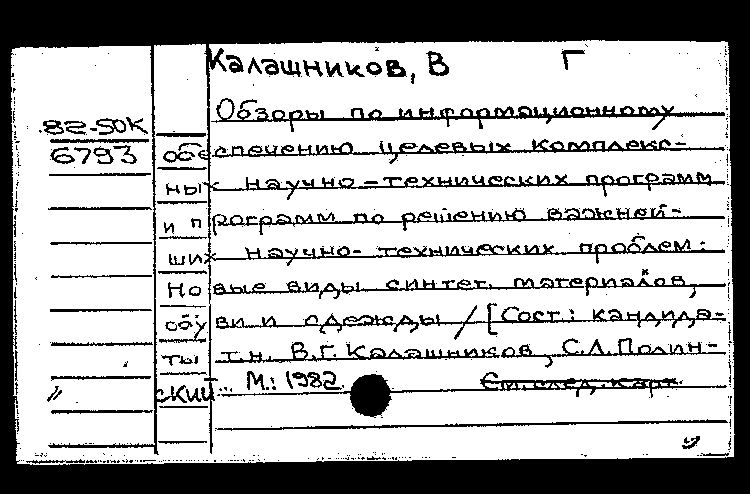 Калашников, В Г
Обзоры по информационному
82-50К
6793 обеспечению целевых комплекс-
ных научно-технических программ
и программ по решению важней-
ших научно-технических проблем:
Новые виды синтет. материалов,
обуви и одежды / [Сост.: кандида-
ты т.н. В.Г. Калашников, С.Л. Полин-
ский]... М.: 1982. См. след. карт.